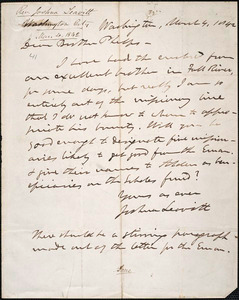 Rev. Joshua Leavitt
Washington City
Mar. 4, 1842
Washington, March 4, 1842
Dear Brother Phelps -
I have had the enclosed from
an excellent brother in Fall River,
for some days, but really I am so
entirely out of the missionary line
that I do not know to whom to appro-
priate his bounty. Will you be
good enough to designate five mission-
aries likely to get good from the Eman.
and give their names to Alden as ben-
eficiaries on the Scholes fund?
Yours as ever
Joshua Leavitt
There should be a stirring paragraph
made out of the letter for the Eman.